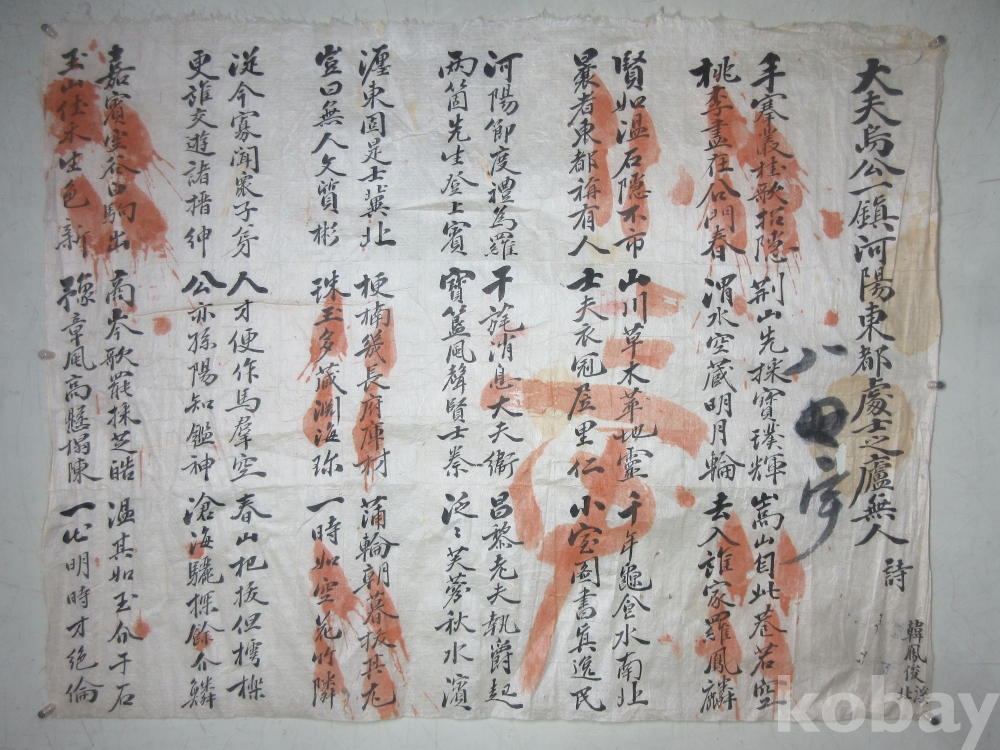 大夫烏公一鎮河陽東都處士之廬無人 詩
韓鳳俊
手搴叢桂歌招隱 荊山先採寶璞輝 嵩山自此巷若空
桃李盡在公門春 渭水空藏明月輪 去入誰家羅鳳麟
賢如溫石隱不市 山川草木華地靈 千年龜食水南北
曩者東都稱有人 士夫衣冠居里仁 小室圖書眞逸民
河陽節度禮爲羅 干旄消息大夫衛 昌黎老夫執爵起
兩箇先生登上賓 寶簋風聲賢士蔡 泛〻芙蓉秋水濱
瀍東固是士冀北 梗楠幾長府庫材 蒲輪朝暮拔其尤
豈曰無人文質彬 珠玉多藏淵海珍 一時如空花竹隣
從今寡聞衆子身 人才便作馬羣空 春山杞 但樗櫟
更誰交遊諸搢紳 公亦孫陽知鑑神 滄海驪 餘介鱗
嘉賓空谷白駒出 商岑歌罷採芝皓 溫其如玉介于石
玉山佳木生色新 豫章風高懸榻陳 一代明時才絶倫
kobay